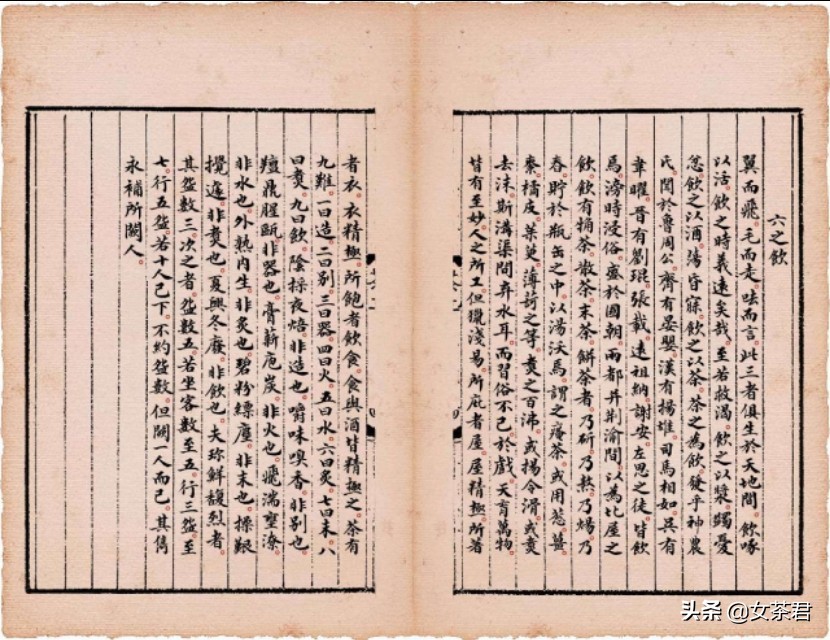 六之飲
翼而飛毛而走呿而言此三者俱生於天地間飲啄
以活飲之時義遠矣哉至若救渴飲之以漿蠲憂
忿飲之以酒蕩昏寐飲之以茶茶之為飲發乎神農
氏聞於魯周公齊有晏嬰漢有揚雄司馬相如吳有
韋曜晉有劉琨張載遠祖納謝安左思之徒皆飲
焉滂時浸俗盛於國朝兩都并荊渝間以為比屋之
飲飲有觕茶散茶末茶餅茶者乃斫乃熬乃煬乃
舂貯於瓶缶之中以湯沃焉謂之痷茶或用蔥薑
棗橘皮茱萸薄荷之等煑之百沸或揚令滑或煑
去沫斯溝渠間弃水耳而習俗不已於戲天育萬物
皆有至妙人之所工但獵淺易所庇者屋屋精極所著
者衣衣精極所飽者飲食食與酒皆精極之茶有
九難一曰造二曰別三曰器四曰火五曰水六曰炙七曰末八
曰煑九曰飲陰採夜焙非造也嚼味嗅香非別也
羶鼎腥甌非器也膏薪庖炭非火也飛湍壅潦
非水也外熟內生非炙也碧粉縹塵非末也操艱
攪遽非煑也夏興冬廢非飲也夫珍鮮馥烈者
其盌數三次之者盌數五若坐客數至五行三盌至
七行五盌若十人已下不約盌數但闕一人而已其雋
永補所闕人
头条 @女茶君